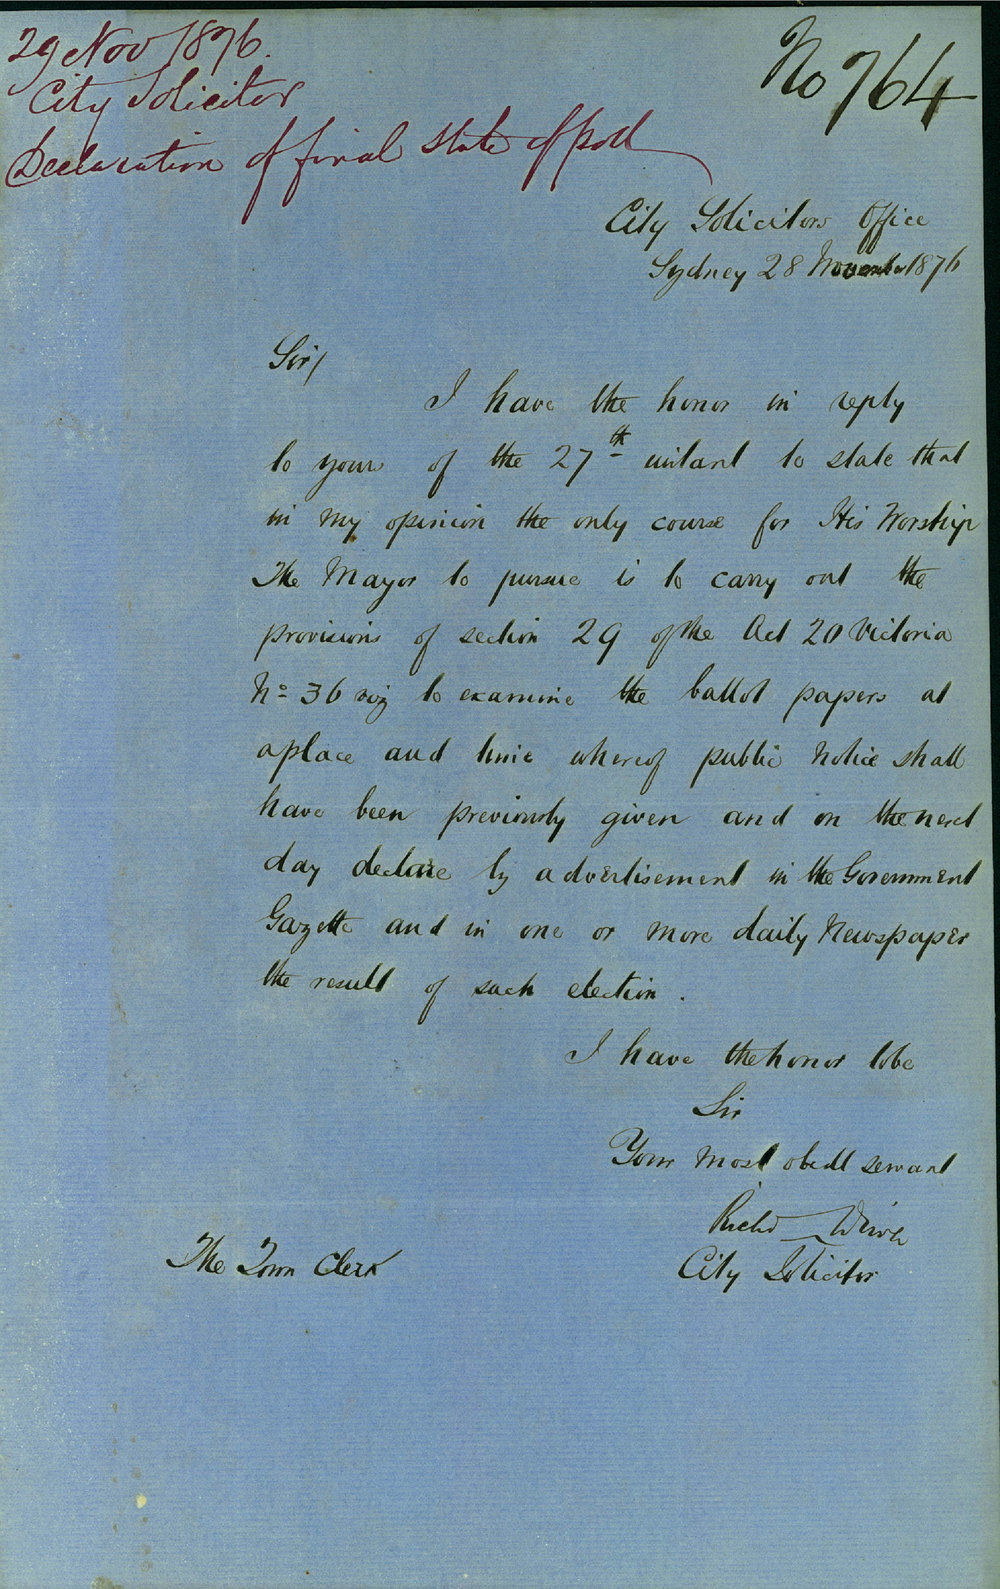 29 Nov 1876.
City Solicitor
Declaration of final state of poll
No 764
City Solicitors Office
Sydney 28 November 1876
Sir/
I have the honor in reply
to yours of the 27th instant to state that
in my opinion the only course for His Worship
The Mayor to pursue is to carry out the
provisions of section 29 of the Act 20 Victoria
No 36 viz to examine the ballot papers at
a place and time whereof public Notice shall
have been previously given and on the next
day declare by advertisement in the Government
Gazette and in one or more daily Newspaper
the result of such election.
I have the honor to be
Sir
Your most obedt servant
Richd
City Solicitor
The Town Clerk